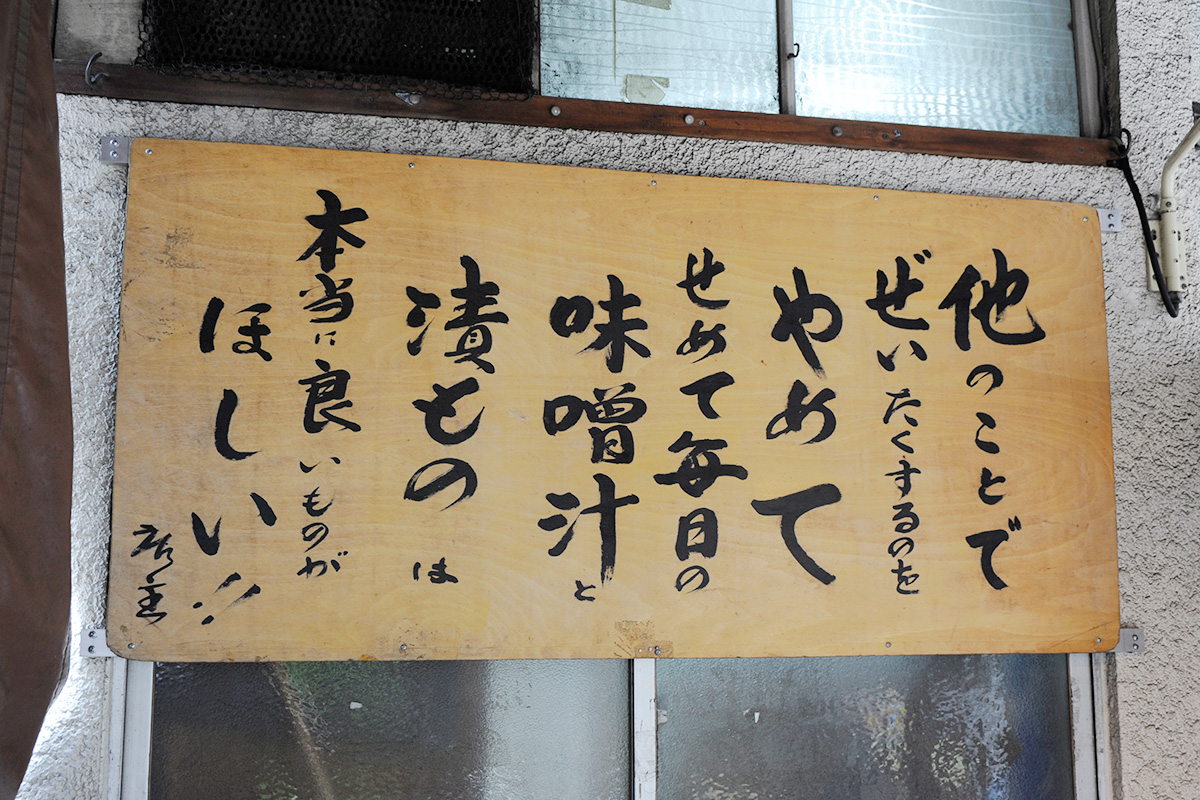 他のことで
ぜいたくするのを
やめて
せめて毎日の
味噌汁と
漬ものは
本当に良いものが
ほしい!!
店主